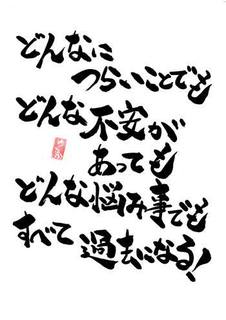 どんなに
つらいことでも
どんな不安が
あっても
どんな悩み事でも
すべて過去になる!